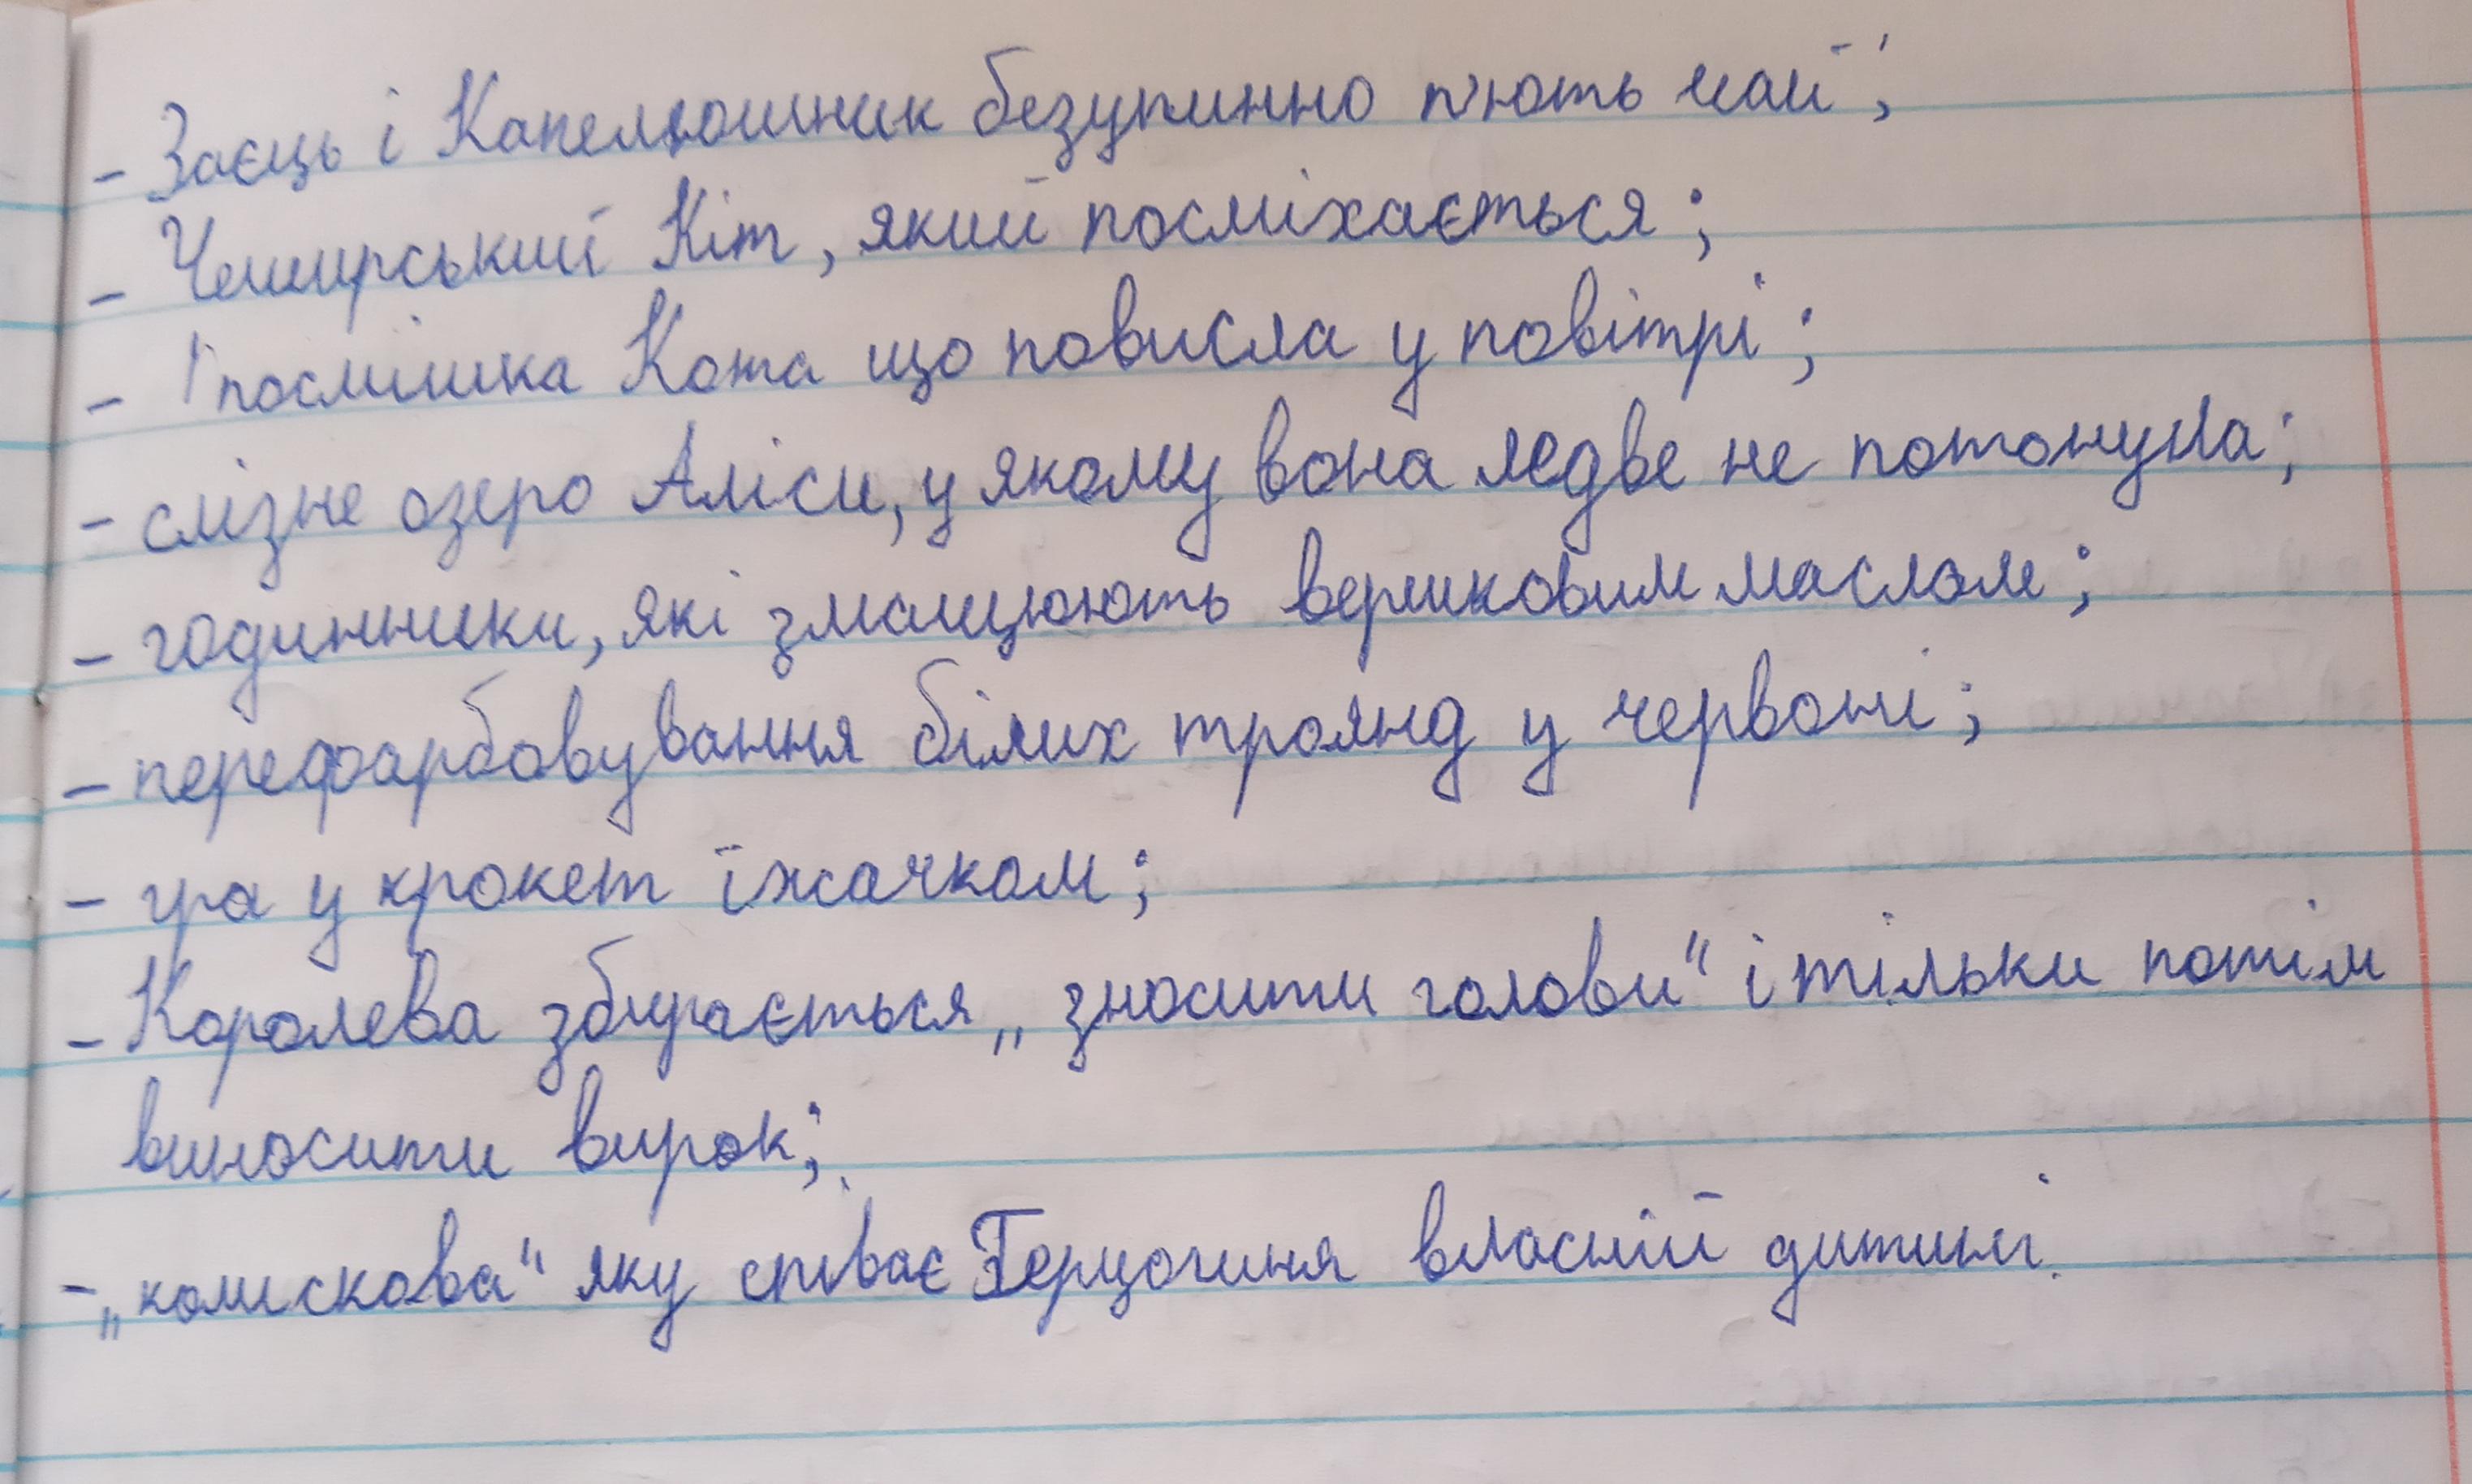 - Заєць і Капелюшник безупинно п'ють чай;
- Чеширський Кіт, який посміхається;
- посмішка Кота що повисла у повітрі;
- слізне озеро Аліси, у якому вона ледве не потонула;
- годинники, які змащюють вершковим маслом;
- перефарбовування білих троянд у червоні;
- гра у крокет їжачком;
- Королева збирається „зносити голови" і тільки потім
виносити вирок;
- „колискова" яку співає Герцогиня власній дитині.